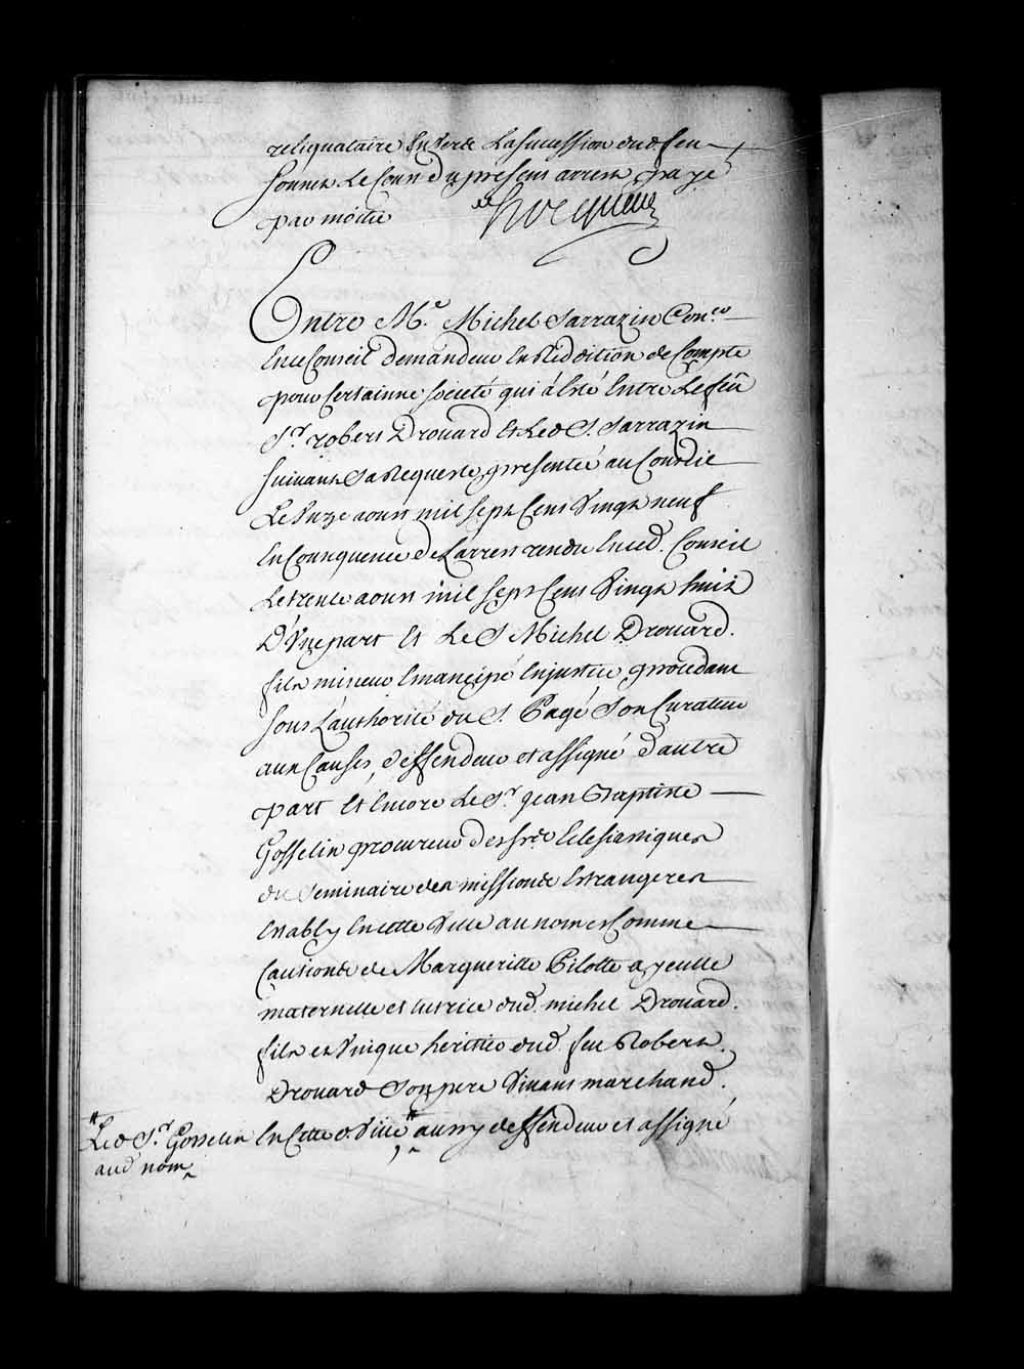 reliquataire Envers La succession dud feu
sonnet Le Cours du present arrest paye
par moitié Hocquart
Entre Me. Michel Sarrazin Coner
En ce Conseil demandeur En Reddition de Compte
pour Certainne societé qui à Esté Entre Le feu
Sr. robert Drouard Et Led S. Sarrazin
suivant sa Requeste presentée au Conseil
Le Unze aoust mil sept Cens Vingt neuf
En Consequence de L'arrest rendu En ced. Conseil
Le trente aoust mil sept Cens Vingt huit
D'Vne part Et Le S Michel Drouard.
fils mineur Emancipé En justice, procedant
sous L'authorité du S. Pagé son Curateur
aux Causes, deffendeur et assigné d'autre
part Et Encore Le Sr. Jean Baptiste
Gosselin procureur des srs Eclesiastiques
du seminaire des missions Estrangeres
Establÿ En cette Ville au nom et Comme
Cautions de Marguerite Pilotte ayeulle
maternelle et tutrice dud. michel Drouard.
fils et Unique heritier dud. feu Robert
Drouard son pere Vivant marchand.
En Cette d. Ville # aussy deffendeur et assigné
# Led Sr. Gosselin
aud nom